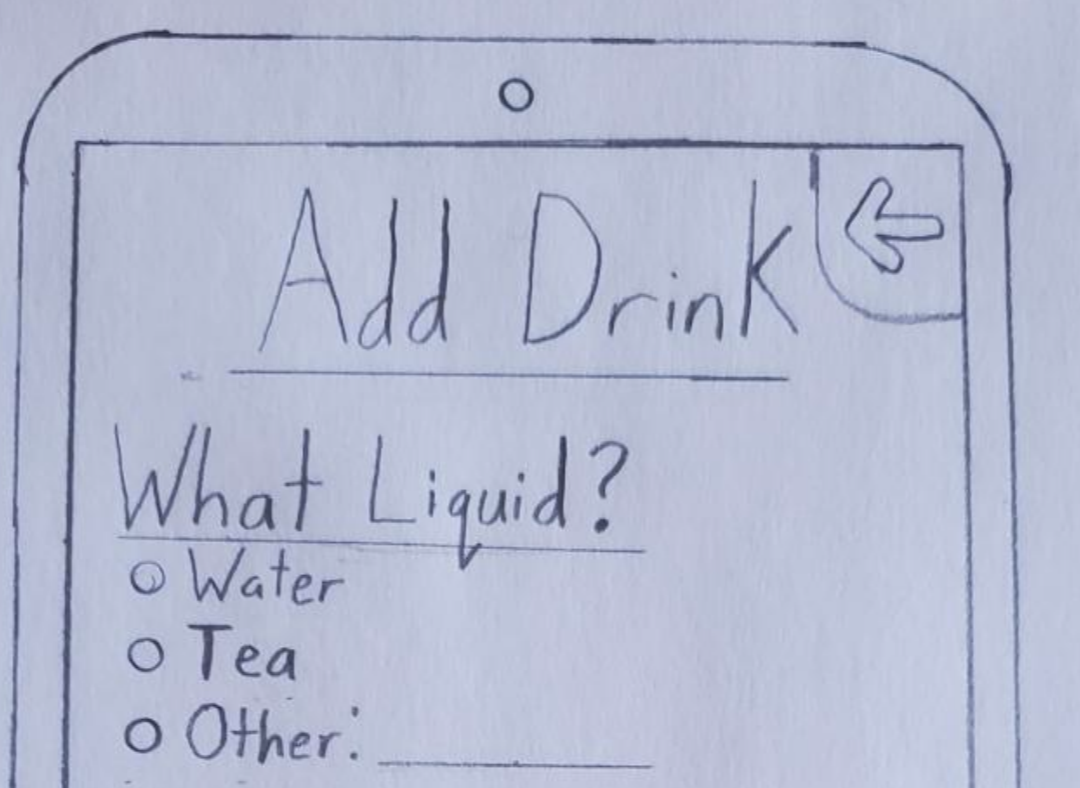 Add Drink
What Liquid?
Water
Tea
Other: ________